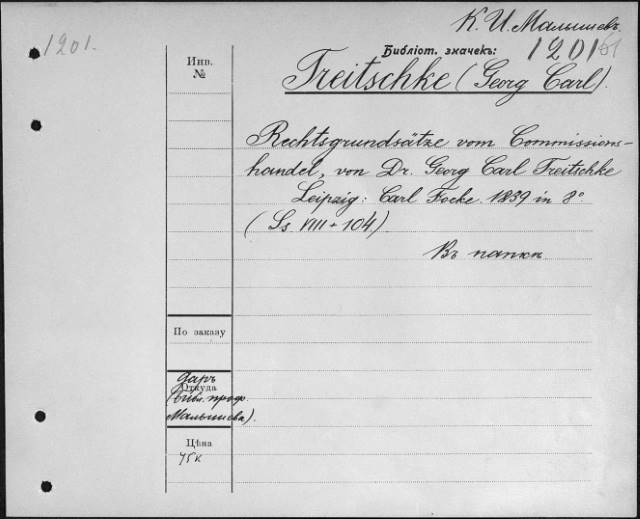 К. И. Малышевъ.
1201.
Библіот. значекъ:
1201
Инв.
№
Treitschke (Georg Carl).
Rechtsgrundsätze vom Commissions-
handel, von Dr. Georg Carl Treitschke
Leipzig: Carl Focke. 1839 in 8°
(Ss VIII + 104)
Въ папкѣ
По заказу
Даръ
Откуда
(Библ. проф.
Малышева).
Цѣна
75 к